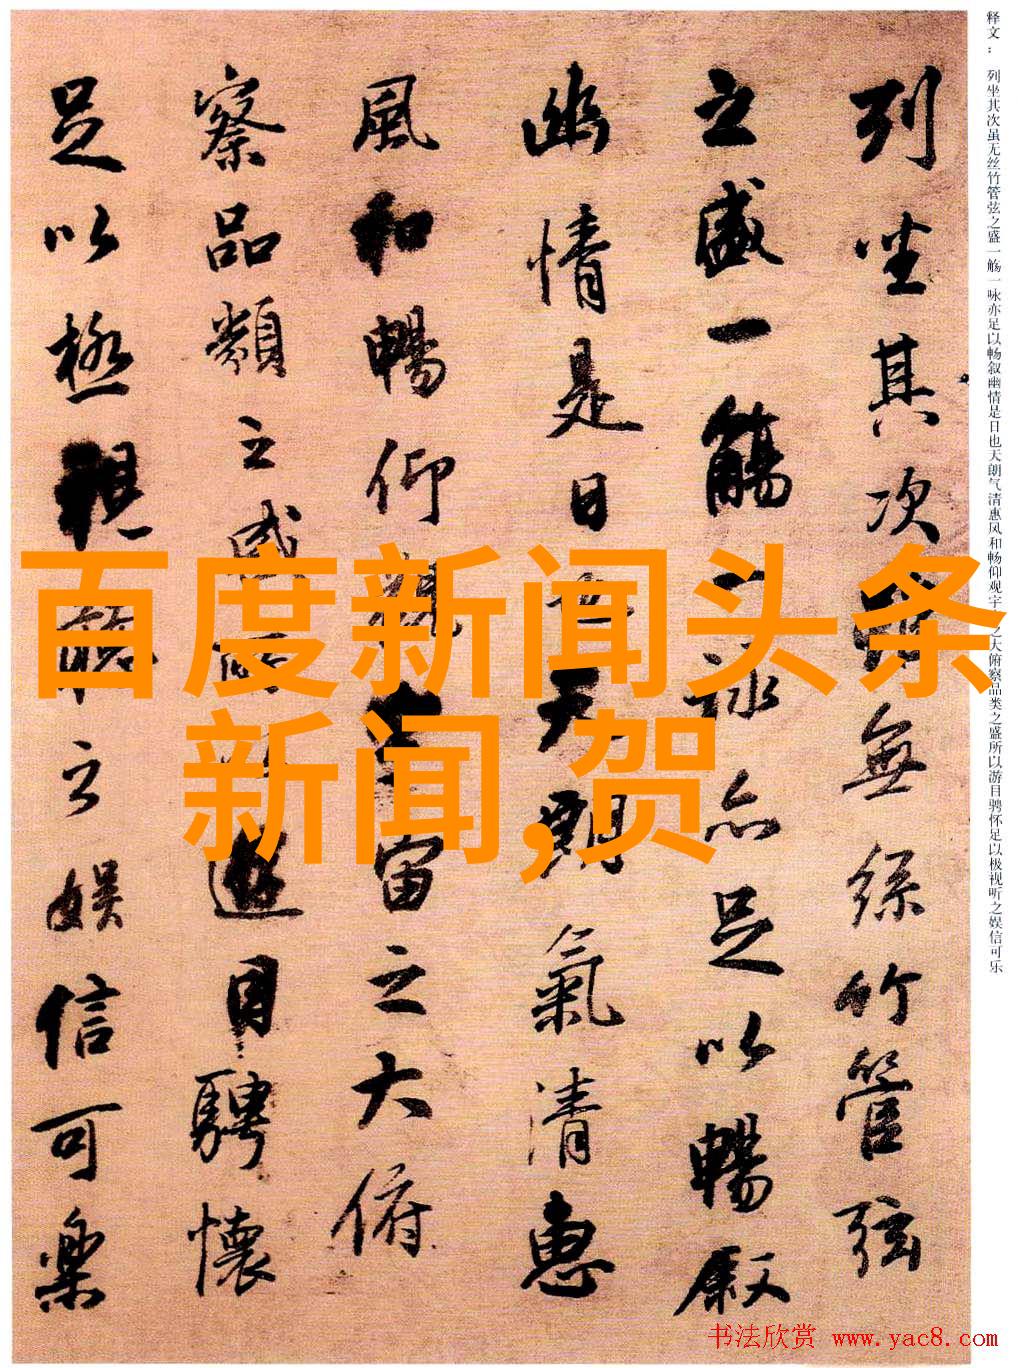 释文：列坐其次虽无丝竹管弦之盛一觞一咏亦足以畅叙幽情是日也天朗气清惠风和畅仰观宇之大俯察品类之盛所以游目骋怀足以极视听之娱信可乐
列坐其次雖無絲竹管弦
之盛一觴一詠亦足以暢敘
幽情是日也天朗氣清惠
風和暢仰觀宇宙之大俯
察品類之盛所以遊目騁懷
足以極視聽之娛信可樂
百度新闻头条
新闻,贺
书法欣赏 www.yac8.com